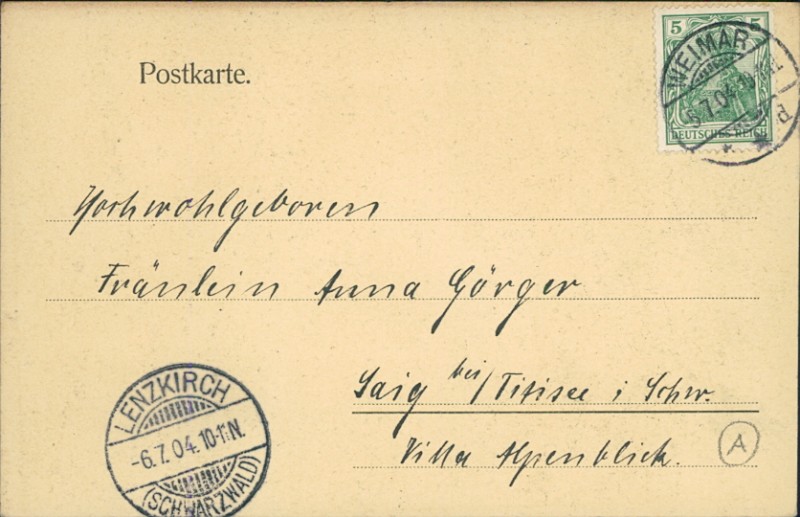 Postkarte.
5 5
WEIMAR
5.7.04. 10-
DEUTSCHES REICH
Hochwohlgeboren
Fräulein Anna Görger
Saig bei/Titisee i Schw.
Villa Alpenblick.
A
LENZKIRCH
-6.7.04. 10-11N.
(SCHWARZWALD)